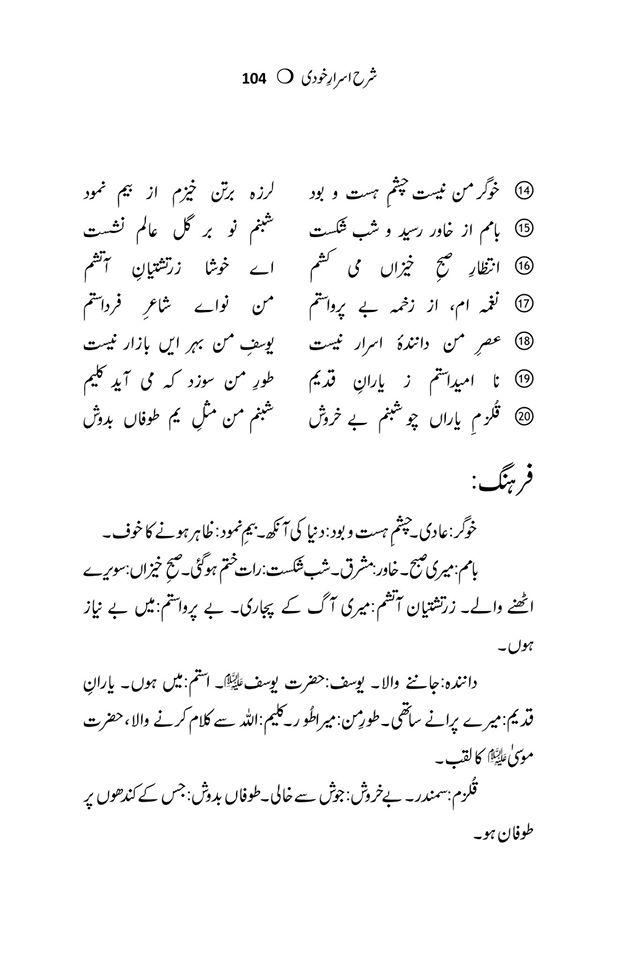 شرح اسرارِ خودی ❍ 104
⑭ خوگرِ من نیست چشمِ ہست و بود لرزہ برتن خیزم از بیمِ نمود
⑮ بامم از خاور رسید و شب شکست شبنمِ نو بر گلِ عالم نشست
⑯ انتظارِ صبح خیزاں می کشم اے خوشا زرتشتیانِ آتشم
⑰ نغمہ ام، از زخمہ بے پرواستم من نواے شاعرِ فرداستم
⑱ عصرِ من دانندۂ اسرار نیست یوسفِ من بہر ایں بازار نیست
⑲ نا امیداستم ز یارانِ قدیم طورِ من سوزد کہ می آید کلیم
⑳ قُلزمِ یاراں چو شبنم بے خروش شبنم من مثلِ یم طوفاں بدوش
فرہنگ:
خوگر: عادی۔ چشمِ ہست و بود: دنیا کی آنکھ۔ بیمِ نمود: ظاہر ہونے کا خوف۔
بامم: میری صبح۔ خاور: مشرق۔ شب شکست: رات ختم ہوگئی۔ صبح خیزاں: سویرے
اٹھنے والے۔ زرتشتیان آتشم: میری آگ کے پجاری۔ بے پرواستم: میں بے نیاز
ہوں۔
دانندہ: جاننے والا۔ یوسف: حضرت یوسف علیہ السلام۔ استم: میں ہوں۔ یارانِ
قدیم: میرے پرانے ساتھی۔ طورِ من: میرا طُور۔ کلیم: اللہ سے کلام کرنے والا، حضرت
موسیٰ علیہ السلام کا لقب۔
قُلزم: سمندر۔ بے خروش: جوش سے خالی۔ طوفاں بدوش: جس کے کندھوں پر
طوفان ہو۔